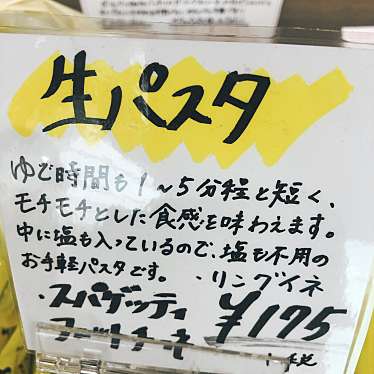 生パスタ
ゆで時間も1～5分程と短く、
モチモチとした食感を味わえます。
中に塩も入っているので、塩も不用の
お手軽パスタです。・リングイネ
・スパゲッティ ¥175